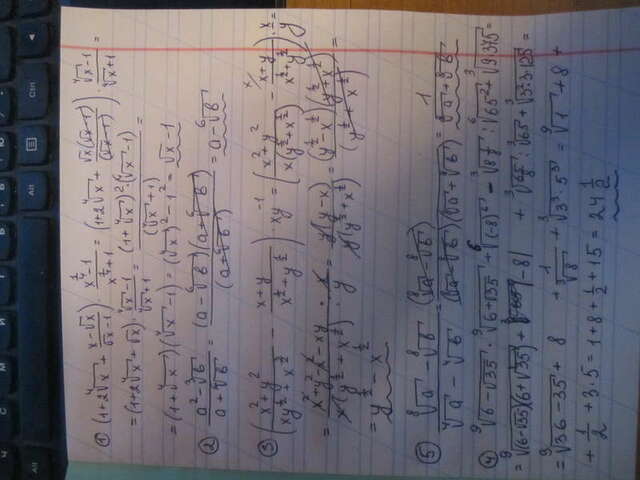 ① (1+2⁴√x + (x−√x)/(√x−1)) · (x^(1/4)−1)/(x^(1/2)+1) = (1+2⁴√x + √x(√x−1)/(√x−1)) · (⁴√x−1)/(⁴√x+1) =
= (1+2⁴√x+√x) · (⁴√x−1)/(⁴√x+1) = (1+⁴√x)²·(⁴√x−1)/(⁴√x+1) =
= (1+⁴√x)(⁴√x−1) = (⁴√x)²−1² = √x−1
② (a²−³√b)/(a+⁶√b) = (a−⁶√b)(a+⁶√b)/(a+⁶√b) = a−⁶√b
③ ((x²+y²)/(xy^(1/2)+x^(3/2)) − (x+y)/(x^(1/2)+y^(1/2))) · xy⁻¹ = ((x²+y²)/(x(y^(1/2)+x^(1/2))) − (x+y)/(x^(1/2)+y^(1/2))) · x/y =
= (x²+y²−x²−xy)/(x(y^(1/2)+x^(1/2))) · x/y = y(y−x)/(y(y^(1/2)+x^(1/2))) = (y^(1/2)−x^(1/2))(y^(1/2)+x^(1/2))/(y^(1/2)+x^(1/2)) =
= y^(1/2) − x^(1/2)
⑤ (⁸√a−⁸√b)/(⁴√a−⁴√b) = (⁸√a−⁸√b)/((⁸√a−⁸√b)(⁸√a+⁸√b)) = 1/(⁸√a+⁸√b)
④ ⁹√(6−√35) · ⁹√(6+√35) + ⁶√((−8)⁶) − ³√(8 1/8) : ⁶√(65²) + ³√(9·375) =
= ⁹√((6−√35)(6+√35)) + |−8| + ³√(65/8) : ³√65 + ³√(3²·3·125) =
= ⁹√(36−35) + 8 + 1/³√8 + ³√(3³·5³) = ⁹√1 + 8 +
+ 1/2 + 3·5 = 1+8+1/2+15 = 24 1/2